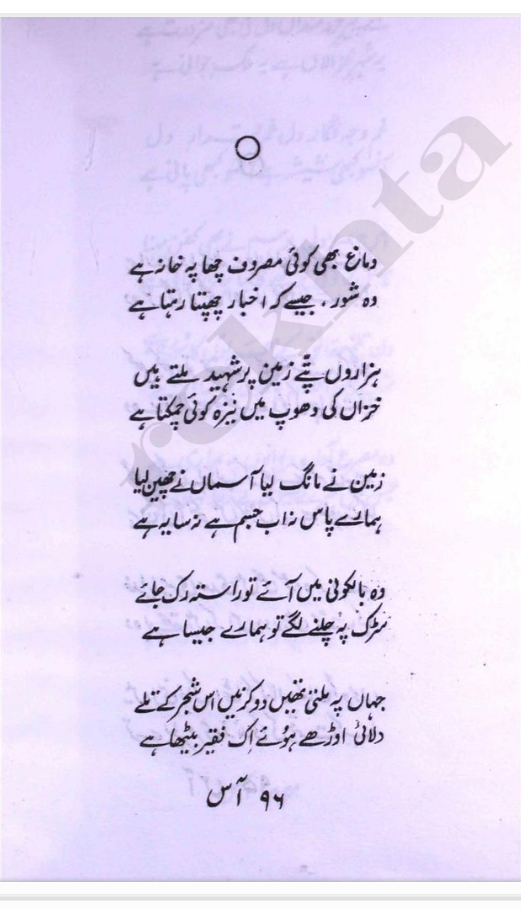 دماغ بھی کوئی مصروف چھاپہ خانہ ہے
وہ شور، جیسے کہ اخبار چھپتا رہتا ہے
ہزاروں پتّے زمین پر شہید ملتے ہیں
خزاں کی دھوپ میں نیزہ کوئی چمکتا ہے
زمین نے مانگ لیا آسماں نے چھین لیا
ہمارے پاس نہ اب جسم ہے نہ سایہ ہے
وہ بالکونی میں آئے تو راستہ رک جائے
سڑک پہ چلنے لگے تو ہمارے جیسا ہے
جہاں پہ ملتی تھیں دو کرنیں اس شجر کے تلے
دلائی اوڑھے ہوئے اِک فقیر بیٹھا ہے
۹۶ آس
rekhta